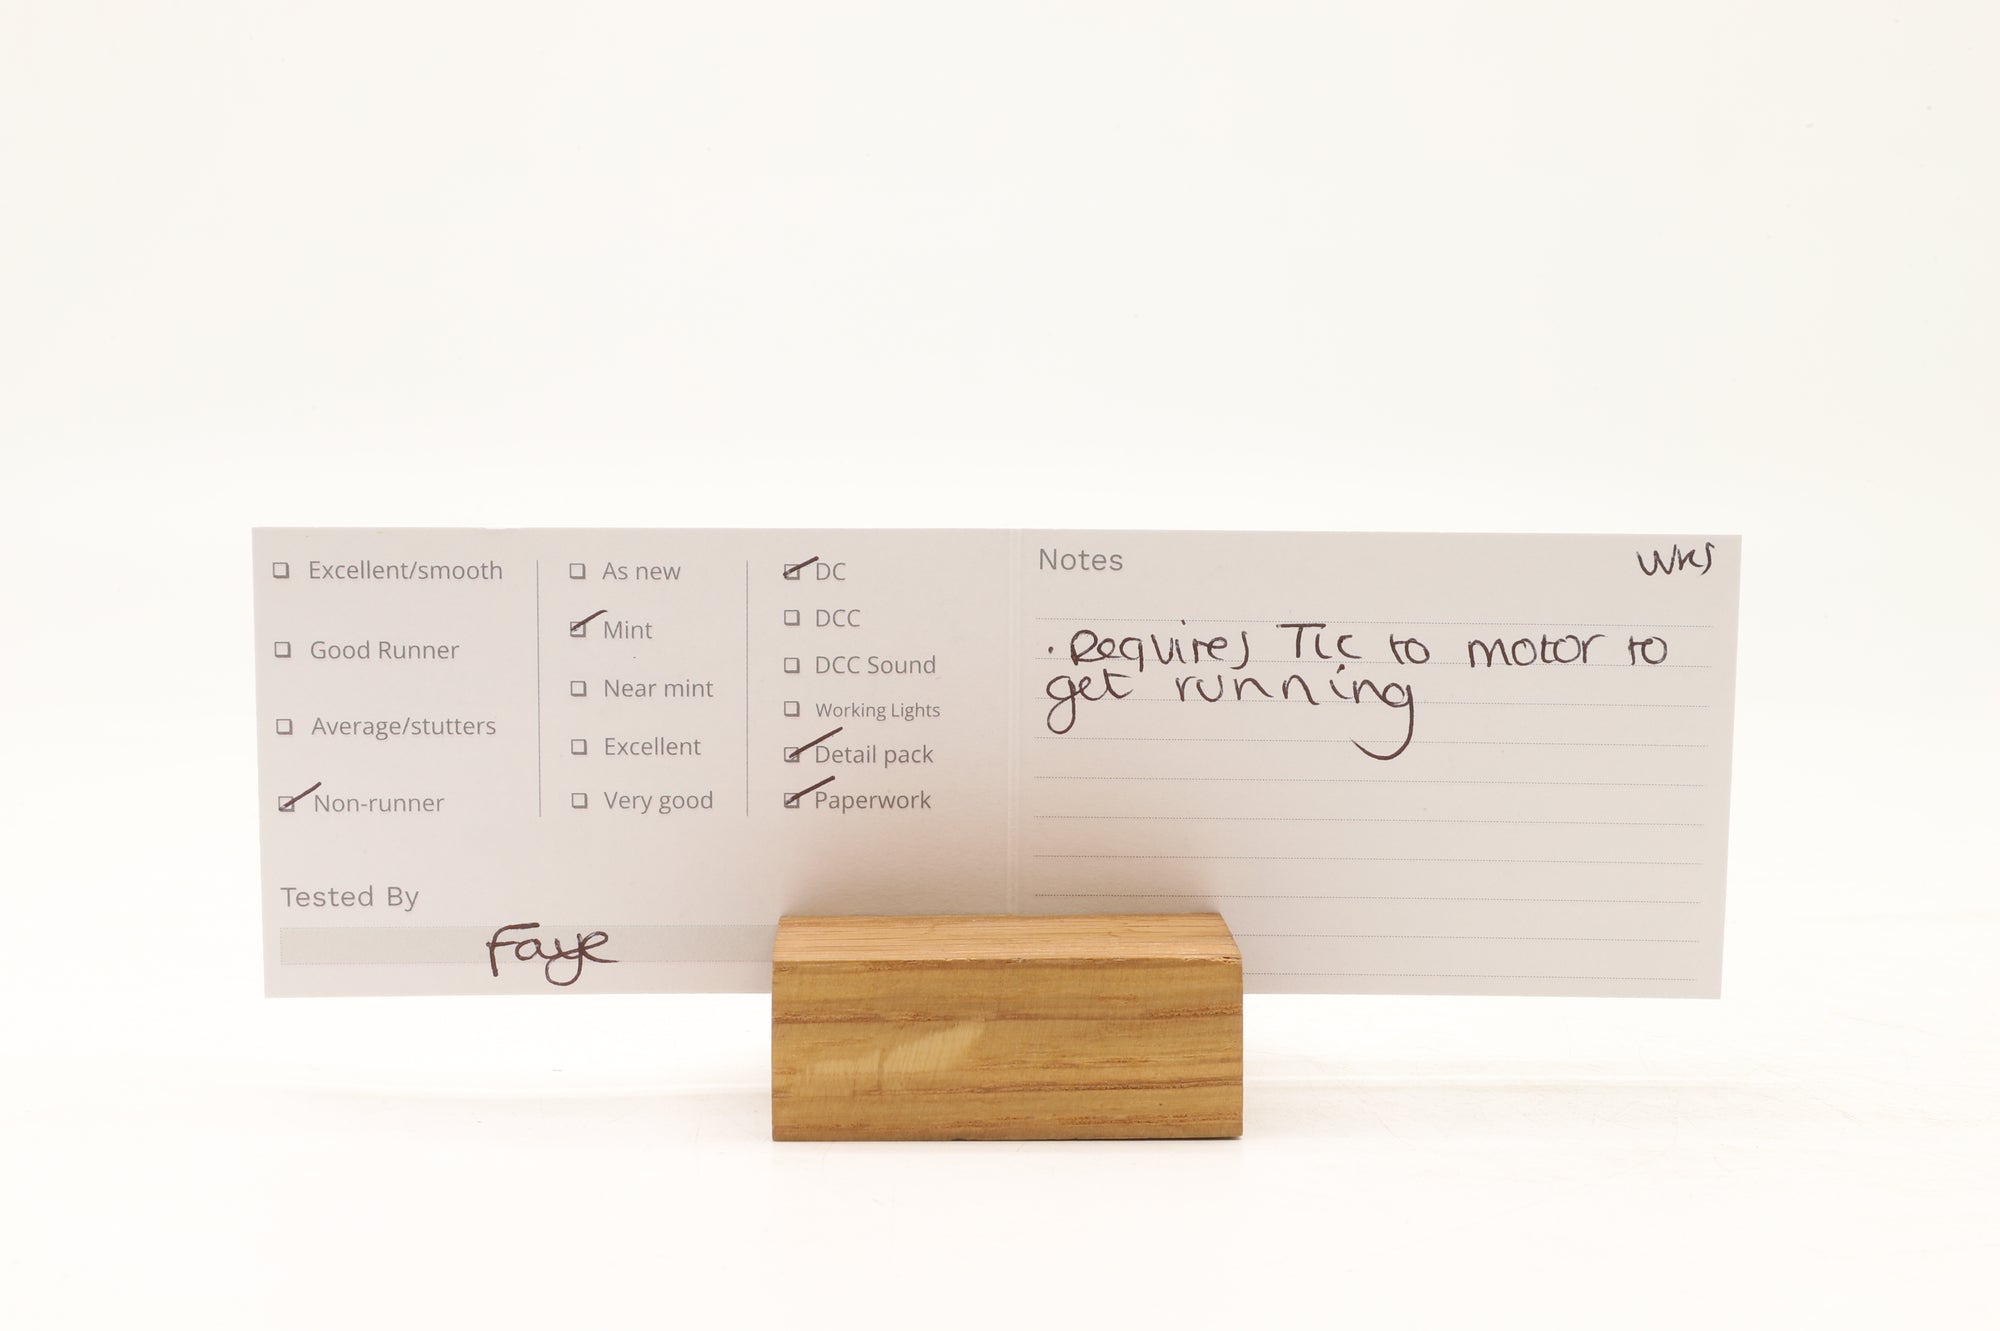 Excellent/smooth
Good Runner
Average/stutters
Non-runner
As new
Mint
Near mint
Excellent
Very good
DC
DCC
DCC Sound
Working Lights
Detail pack
Paperwork
Tested By
Faye
Notes
WKS
· Requires TLC to motor to
get running